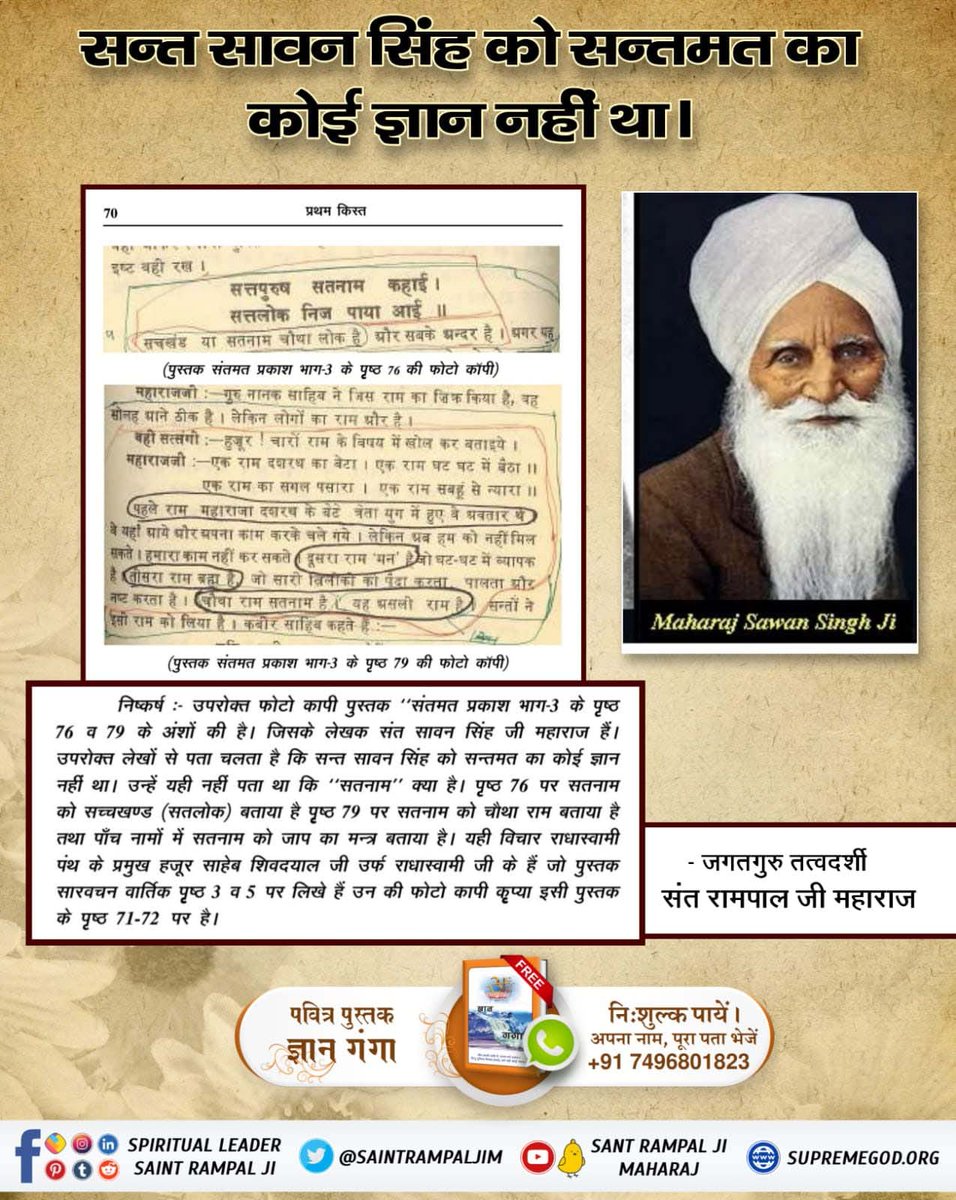 सन्त सावन सिंह को सन्तमत का
कोई ज्ञान नहीं था।
70
प्रथम किस्त
इष्ट वही रख ।
सत्तपुरुष सतनाम कहाई ।
सत्तलोक निज पाया आई ॥
सचखंड या सतनाम चौथा लोक है और सबके अन्दर है । अगर यह
(पुस्तक संतमत प्रकाश भाग-3 के पृष्ठ 76 की फोटो कॉपी)
महाराजजी :—गुरु नानक साहिब ने जिस राम का ज़िक्र किया है, वह
सोलह आने ठीक है । लेकिन लोगों का राम और है ।
वही सत्संगी :—हुज़ूर ! चारों राम के विषय में खोल कर बताइये ।
महाराजजी :—एक राम दशरथ का बेटा । एक राम घट घट में बैठा ॥
एक राम का सगल पसारा । एक राम सबहूं से न्यारा ॥
पहले राम महाराजा दशरथ के बेटे त्रेता युग में हुए वे अवतार थे
वे यहाँ आये और अपना काम करके चले गये । लेकिन अब हम को नहीं मिल
सकते । हमारा काम नहीं कर सकते । दूसरा राम 'मन' है जो घट-घट में व्यापक
है । तीसरा राम ब्रह्म है, जो सारी त्रिलोकी को पैदा करता, पालता और
नष्ट करता है । चौथा राम सतनाम है । यह असली राम है । सन्तों ने
इसी राम को लिया है । कबीर साहिब कहते हैं :—
(पुस्तक संतमत प्रकाश भाग-3 के पृष्ठ 79 की फोटो कॉपी)
Maharaj Sawan Singh Ji
निष्कर्ष :- उपरोक्त फोटो कापी पुस्तक ''संतमत प्रकाश भाग-3 के पृष्ठ
76 व 79 के अंशों की है। जिसके लेखक संत सावन सिंह जी महाराज हैं।
उपरोक्त लेखों से पता चलता है कि सन्त सावन सिंह को सन्तमत का कोई ज्ञान
नहीं था। उन्हें यही नहीं पता था कि ''सतनाम'' क्या है। पृष्ठ 76 पर सतनाम
को सच्चखण्ड (सतलोक) बताया है पृष्ठ 79 पर सतनाम को चौथा राम बताया है
तथा पाँच नामों में सतनाम को जाप का मन्त्र बताया है। यही विचार राधास्वामी
पंथ के प्रमुख हजूर साहेब शिवदयाल जी उर्फ राधास्वामी जी के हैं जो पुस्तक
सारवचन वार्तिक पृष्ठ 3 व 5 पर लिखे हैं उन की फोटो कापी कृप्या इसी पुस्तक
के पृष्ठ 71-72 पर है।
- जगतगुरु तत्वदर्शी
संत रामपाल जी महाराज
पवित्र पुस्तक
ज्ञान गंगा
FREE
ज्ञान गंगा
नि:शुल्क पायें।
अपना नाम, पूरा पता भेजें
+91 7496801823
SPIRITUAL LEADER
SAINT RAMPAL JI
@SAINTRAMPALJIM
SANT RAMPAL JI
MAHARAJ
SUPREMEGOD.ORG